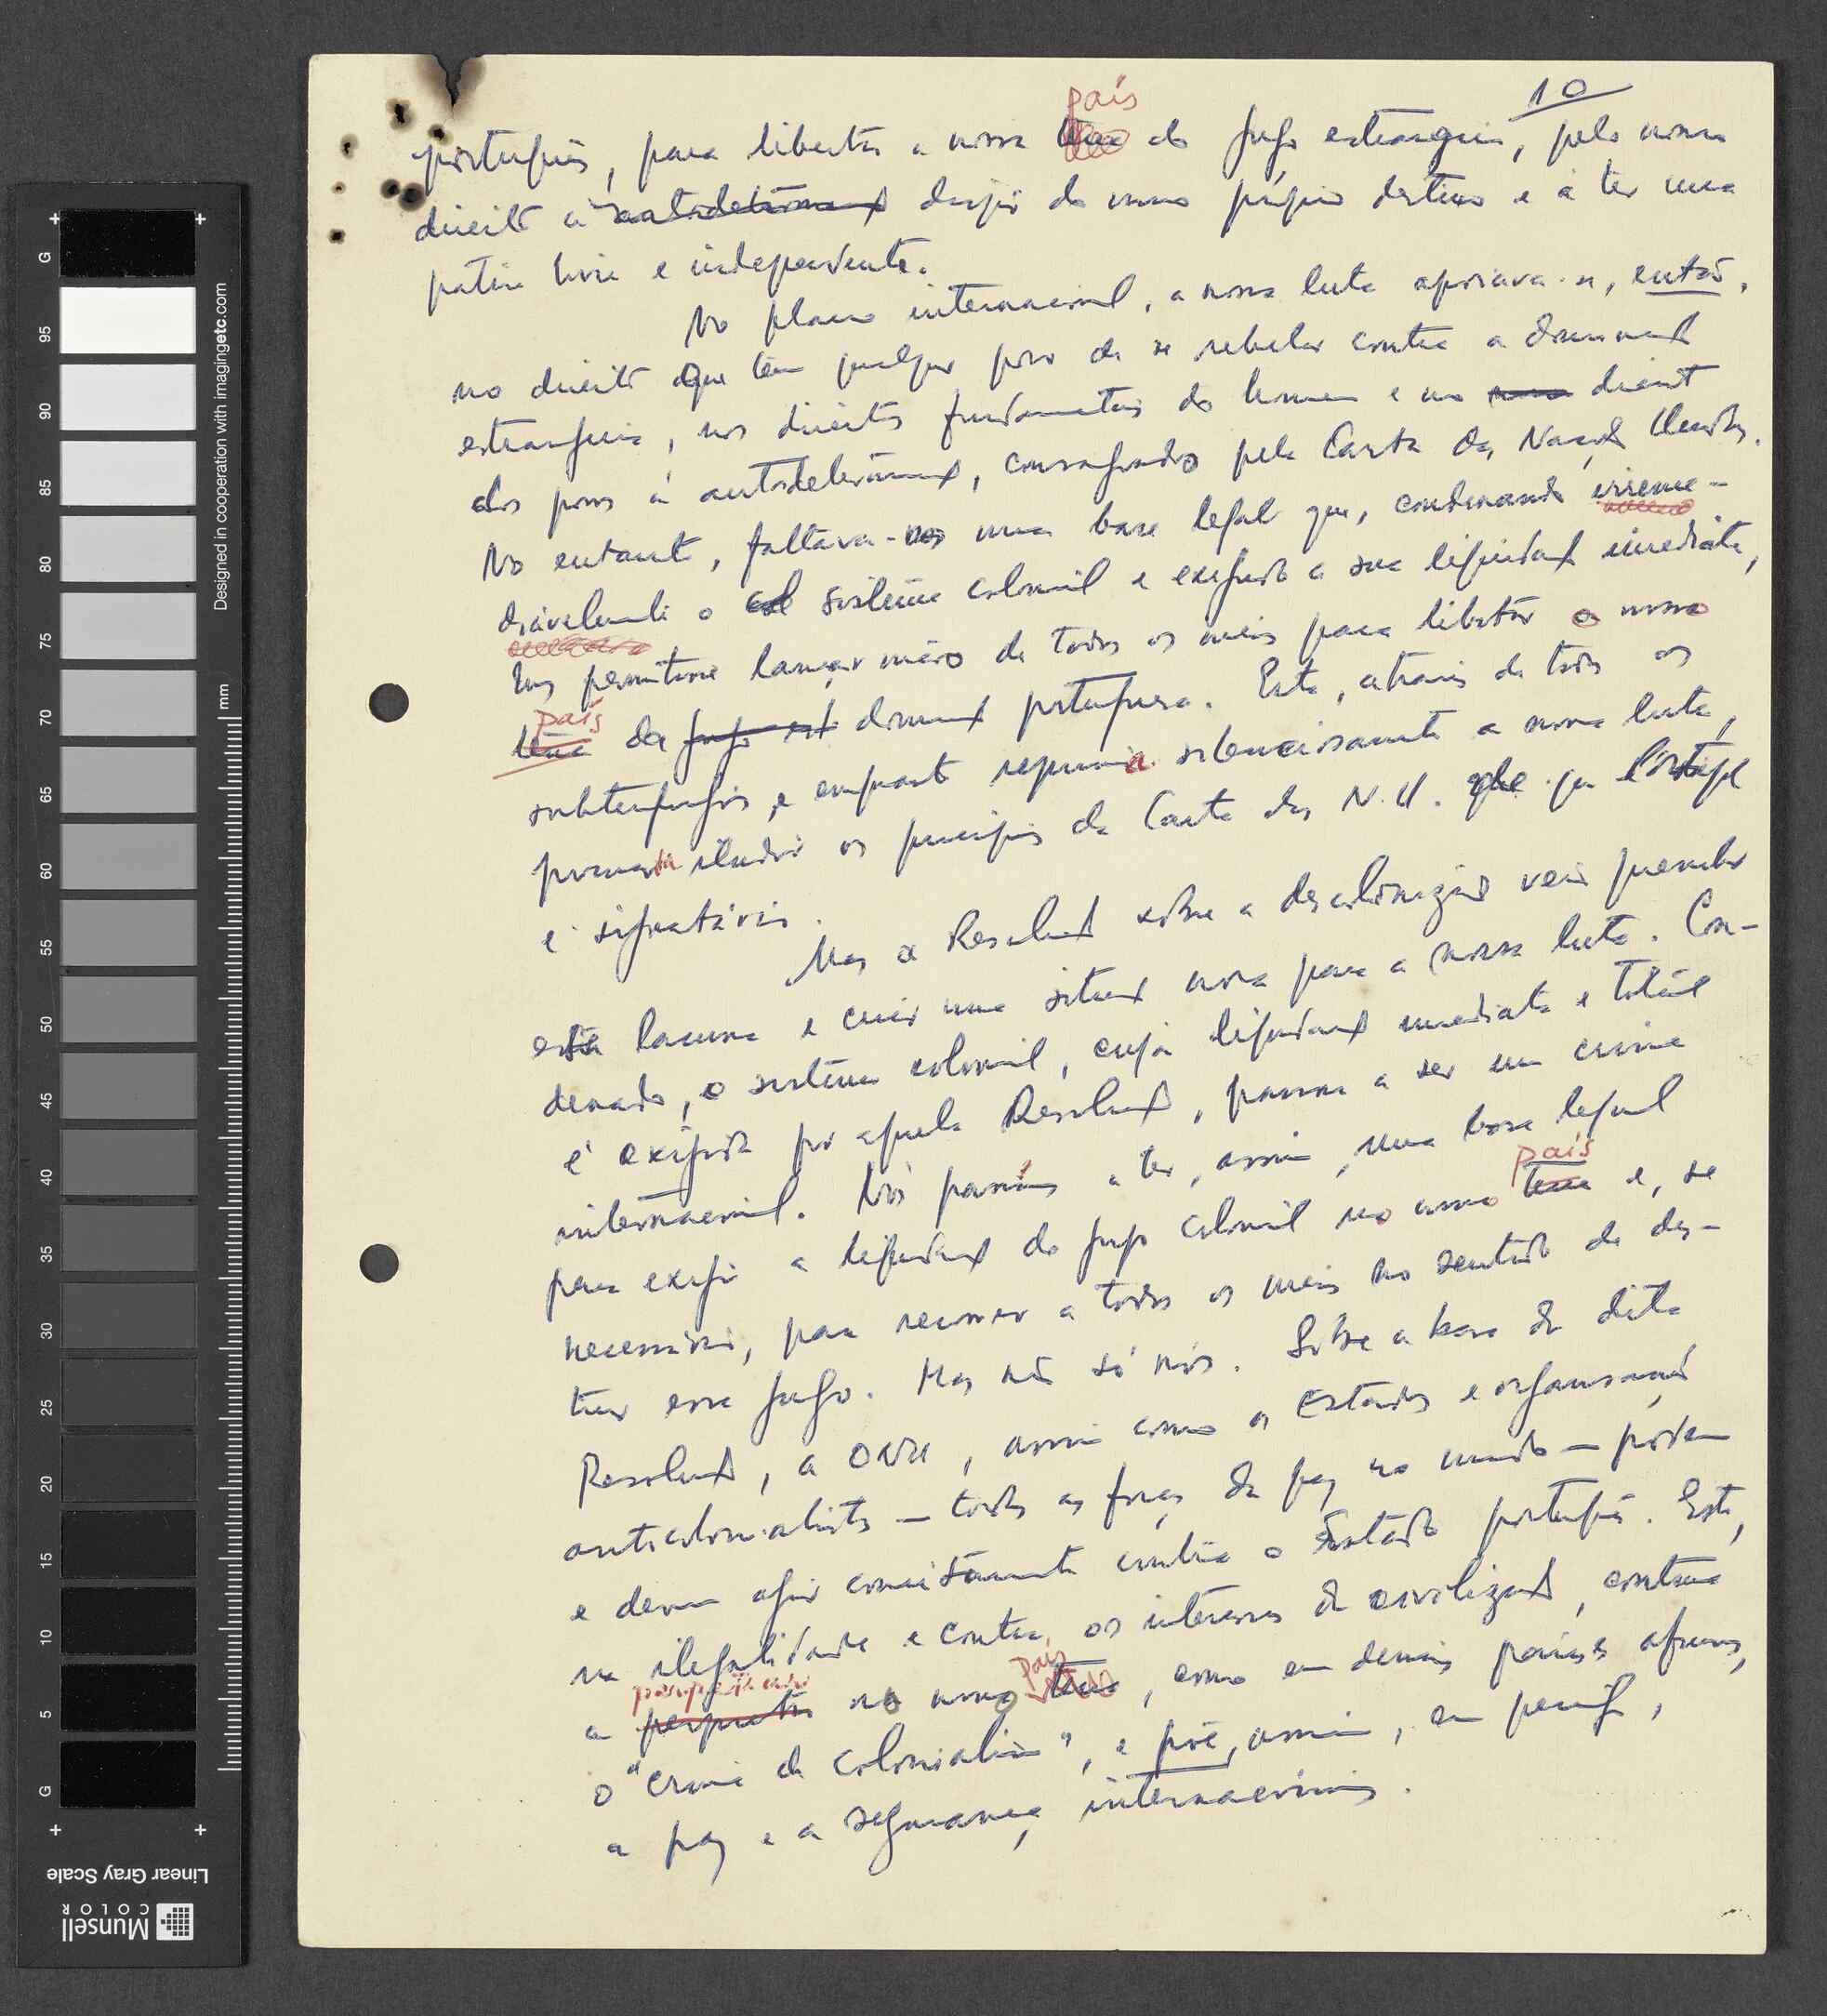 10
país
português, para libertar a nossa terra do jugo estrangeiro, pelo nosso
direito à autodeterminação dirigir do nosso próprio destino e a ter uma
pátria livre e independente.
No plano internacional, a nossa luta apoiava-se, então,
no direito que tem qualquer povo de se rebelar contra a dominação
estrangeira, nos direitos fundamentais do homem e no direito
dos povos à autodeterminação, consagrados pela Carta das Nações Unidas.
No entanto, faltava-nos uma base legal que, condenando irreme-
diàvelmente o sistema colonial e exigindo a sua liquidação imediata,
nos permitisse lançar mão de todos os meios para libertar o nosso
país
terra da jugo est dominação portuguesa. Esta, através de todos os
subterfúgios, e enquanto reprimia silenciosamente a nossa luta,
procurava iludir os princípios da Carta das N.U. de que Portugal
é signatário.
Mas a Resolução sobre a descolonização veio preencher
esta lacuna e criar uma situação nova para a nossa luta. Con-
denado, o sistema colonial, cuja liquidação imediata e total
é exigida por aquela Resolução, passou a ser um crime
internacional. Nós passámos a ter, assim, uma base legal
país
para exigir a liquidação do jugo colonial no nosso terra e, se
necessário, para recorrer a todos os meios no sentido de des-
truir esse jugo. Mas não só nós. Sobre a base da dita
Resolução, a ONU, assim como os Estados e organizações
anticolonialistas — todas as forças da paz no mundo — podem
e devem agir concretamente contra o Estado português. Este,
na ilegalidade e contra os interesses da civilização, continua
país
a perpetrar no nosso terra, como em demais países africanos,
o "crime de colonialismo", e põe, assim, em perigo,
a paz e a segurança internacionais.
G
95
90
85
80
75
70
65
60
55
50
45
40
35
30
25
20
15
10
5
G
mm
Designed in cooperation with imagingetc.com
Linear Gray Scale
Munsell
COLOR